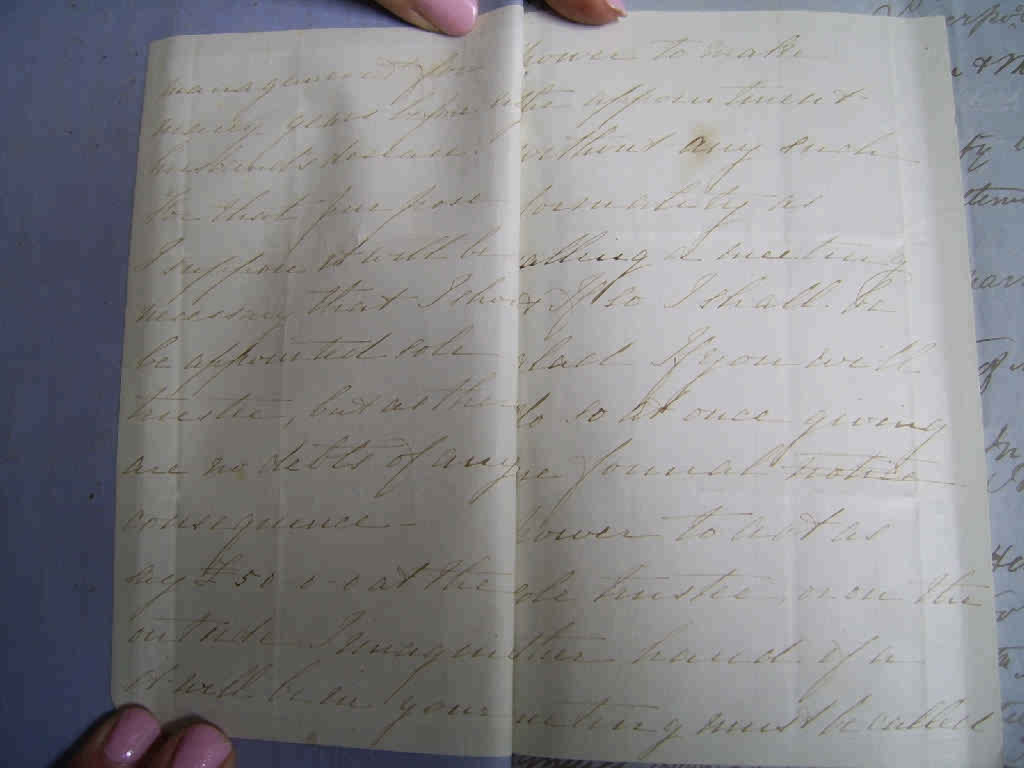 management for
many years before
husbands
for that purpose
I suppose it will be
necessary that I should
be appointed sole
trustee, but as there
are no debts of any
consequence -
say £50 - - at the
outside I imagine
it will be in your
power to make
the appointment
without any such
formality as
calling a meeting
If so I shall be
glad If you will
do so at once giving
me formal notice
power to act as
sole trustee, or on the
other hand if a
meeting must be called